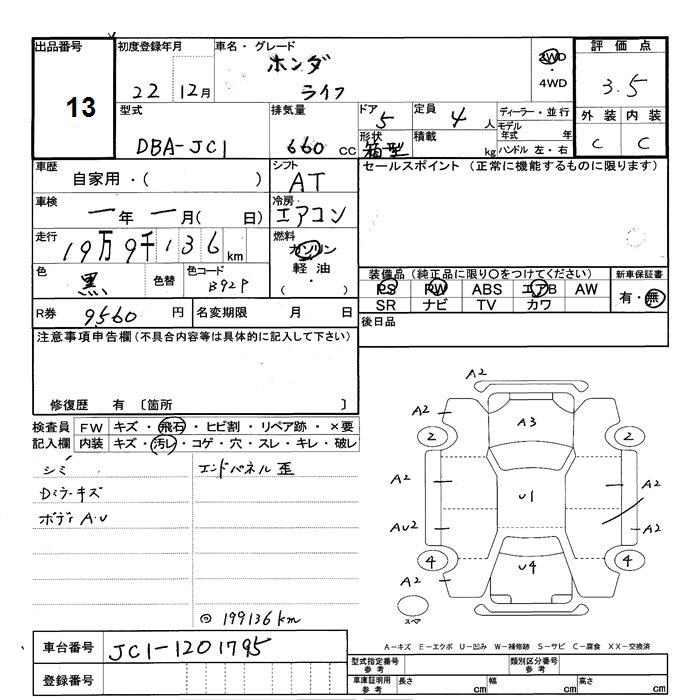 出品番号
13
初度登録年月
22 12月
車名・グレード
ホンダ
ライフ
2WD
・
4WD
評価点
3.5
外装 内装
C C
型式
DBA-JC1
排気量
660 CC
ドア
5
形状
箱型
定員
4 人
積載
kg
ディーラー・並行
モデル年式 年
ハンドル 左・右
車歴
自家用・( )
シフト
AT
セールスポイント (正常に機能するものに限ります)
車検
一年 一月( 日)
冷房
エアコン
走行
19万9千136 km
燃料
ガソリン
軽油
( )
色
黒
色替
色コード
B92P
装備品 (純正品に限り○をつけてください)
PS PW ABS エアB AW
SR ナビ TV カワ
新車保証書
有・無
R券
9560 円
名変期限 月 日
後日品
注意事項申告欄(不具合内容等は具体的に記入して下さい)
修復歴 有 〔箇所 〕
検査員
記入欄
FW キズ・飛石・ヒビ割・リペア跡・×要
内装 キズ・汚レ・コゲ・穴・スレ・キレ・破レ
シミ
Dミラーキズ
ボディA.U
エンドパネル歪
◎199136km
A2
A2
A3
2
2
A2
U1
A2
AU2
A2
4
4
A2
U4
スペア
A-キズ E-エクボ U-凹み W-補修跡 S-サビ C-腐食 XX-交換済
車台番号
JC1-1201795
登録番号
型式指定番号
参考
類別区分番号
参考
車庫証明用
参考
長さ cm
幅 cm
高さ cm